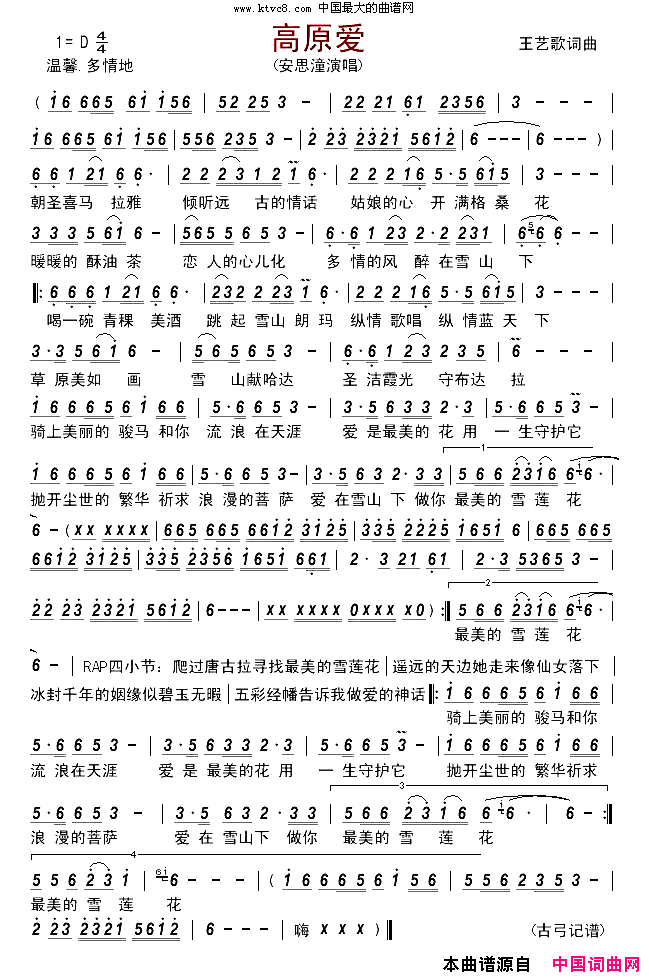 www.ktvc8.com 中国最大的曲谱网
1=D 4/4
高原爱
王艺歌词曲
温馨.多情地
(安思潼演唱)
( 16 665 61 156 | 52 25 3 - | 22 22 61 2356 | 3 - - - |
16 665 61 156 | 556 235 3 - | 2 23 2321 5612 | 6 - - - | 6 - - - )
6 6 1 21 6 6 · | 2 2 2 3 1 2 1 6 | 2 2 2 16 5 · 5 615 | 3 - - - |
朝圣喜马 拉雅 倾听远 古的情话 姑娘的心 开 满格 桑 花
3 3 3 5 21 2 · | 565 5 653 5 - | 6 · 6 1 23 2 · 2 231 | 6 6 6 · - |
暖暖的 酥油 茶 恋 人的心儿化 多 情的风 醉 在雪 山 下
‖: 6 6 6 1 21 6 · | 232 2 23 1 6 | 2 2 2 16 5 · 5 615 | 3 - - - |
喝一碗 青稞 美酒 跳 起 雪山 朗 玛 纵情 歌唱 纵 情蓝 天 下
3 · 3 5 61 6 · | 5 65 5 653 5 - | 6 · 6 1 23 2 35 2 | 6 - - - |
草 原美如 画 雪 山献哈达 圣 洁霞光 守布达 拉
1 6 6 6 5 6 1 6 6 | 5 · 6 6 5 3 - | 3 · 5 6 3 3 2 · 3 | 5 · 6 6 5 3 - |
骑上美丽的 骏马 和你 流 浪在天涯 爱 是最美的 花 用 一 生守护它
1
1 6 6 6 5 6 1 6 6 | 5 · 6 6 5 3 · 3 | 3 · 5 6 3 3 2 · 3 | 5 6 6 231 6 6 6 6 · |
抛开尘世的 繁华 祈求 浪 漫的菩 萨 爱 在雪山 下 做你 最美的 雪 莲 花
6 - (xx xxxx | 665 665 6612 3125 | 335 2225 1651 6 | 665 665
6612 3125 | 335 2356 1651 661 | 2 · 3 21 61 | 2 · 3 5365 3 - |
2
22 23 2321 5612 | 6 - - - | xx xxxx 0xxx x0) :‖ 5 6 6 231 6 6 6 · |
最美的 雪 莲 花
6 - | RAP四小节: 爬过唐古拉寻找最美的雪莲花 | 遥远的天边她走来像仙女落下 |
冰封千年的姻缘似碧玉无暇 | 五彩经幡告诉我做爱的神话 ‖: 1 6 6 6 5 6 1 6 6 |
骑上美丽的 骏马和你
5 · 6 6 5 3 - | 3 · 5 6 3 3 2 · 3 | 5 · 6 6 5 3 - | 1 6 6 6 5 6 1 6 6 |
流 浪在天涯 爱 是 最美的花 用 一 生守护它 抛开尘世的 繁华祈求
3
5 · 6 6 5 3 - | 3 · 5 6 3 3 2 · 3 | 5 6 6 2 3 1 6 6 | 6 · - | 6 - :‖
浪 漫的菩萨 爱 在 雪山下 做你 最美的 雪 莲 花
4
5 5 6 2 3 1 | 6 - - - | ( 1 6 6 6 5 6 1 6 6 | 5 · 6 6 5 3 - |
最美的 雪 莲 花
2 23 2321 5612 | 6 - - - | 嗨 x x x ) ‖ (古弓记谱)
本曲谱源自 中国词曲网